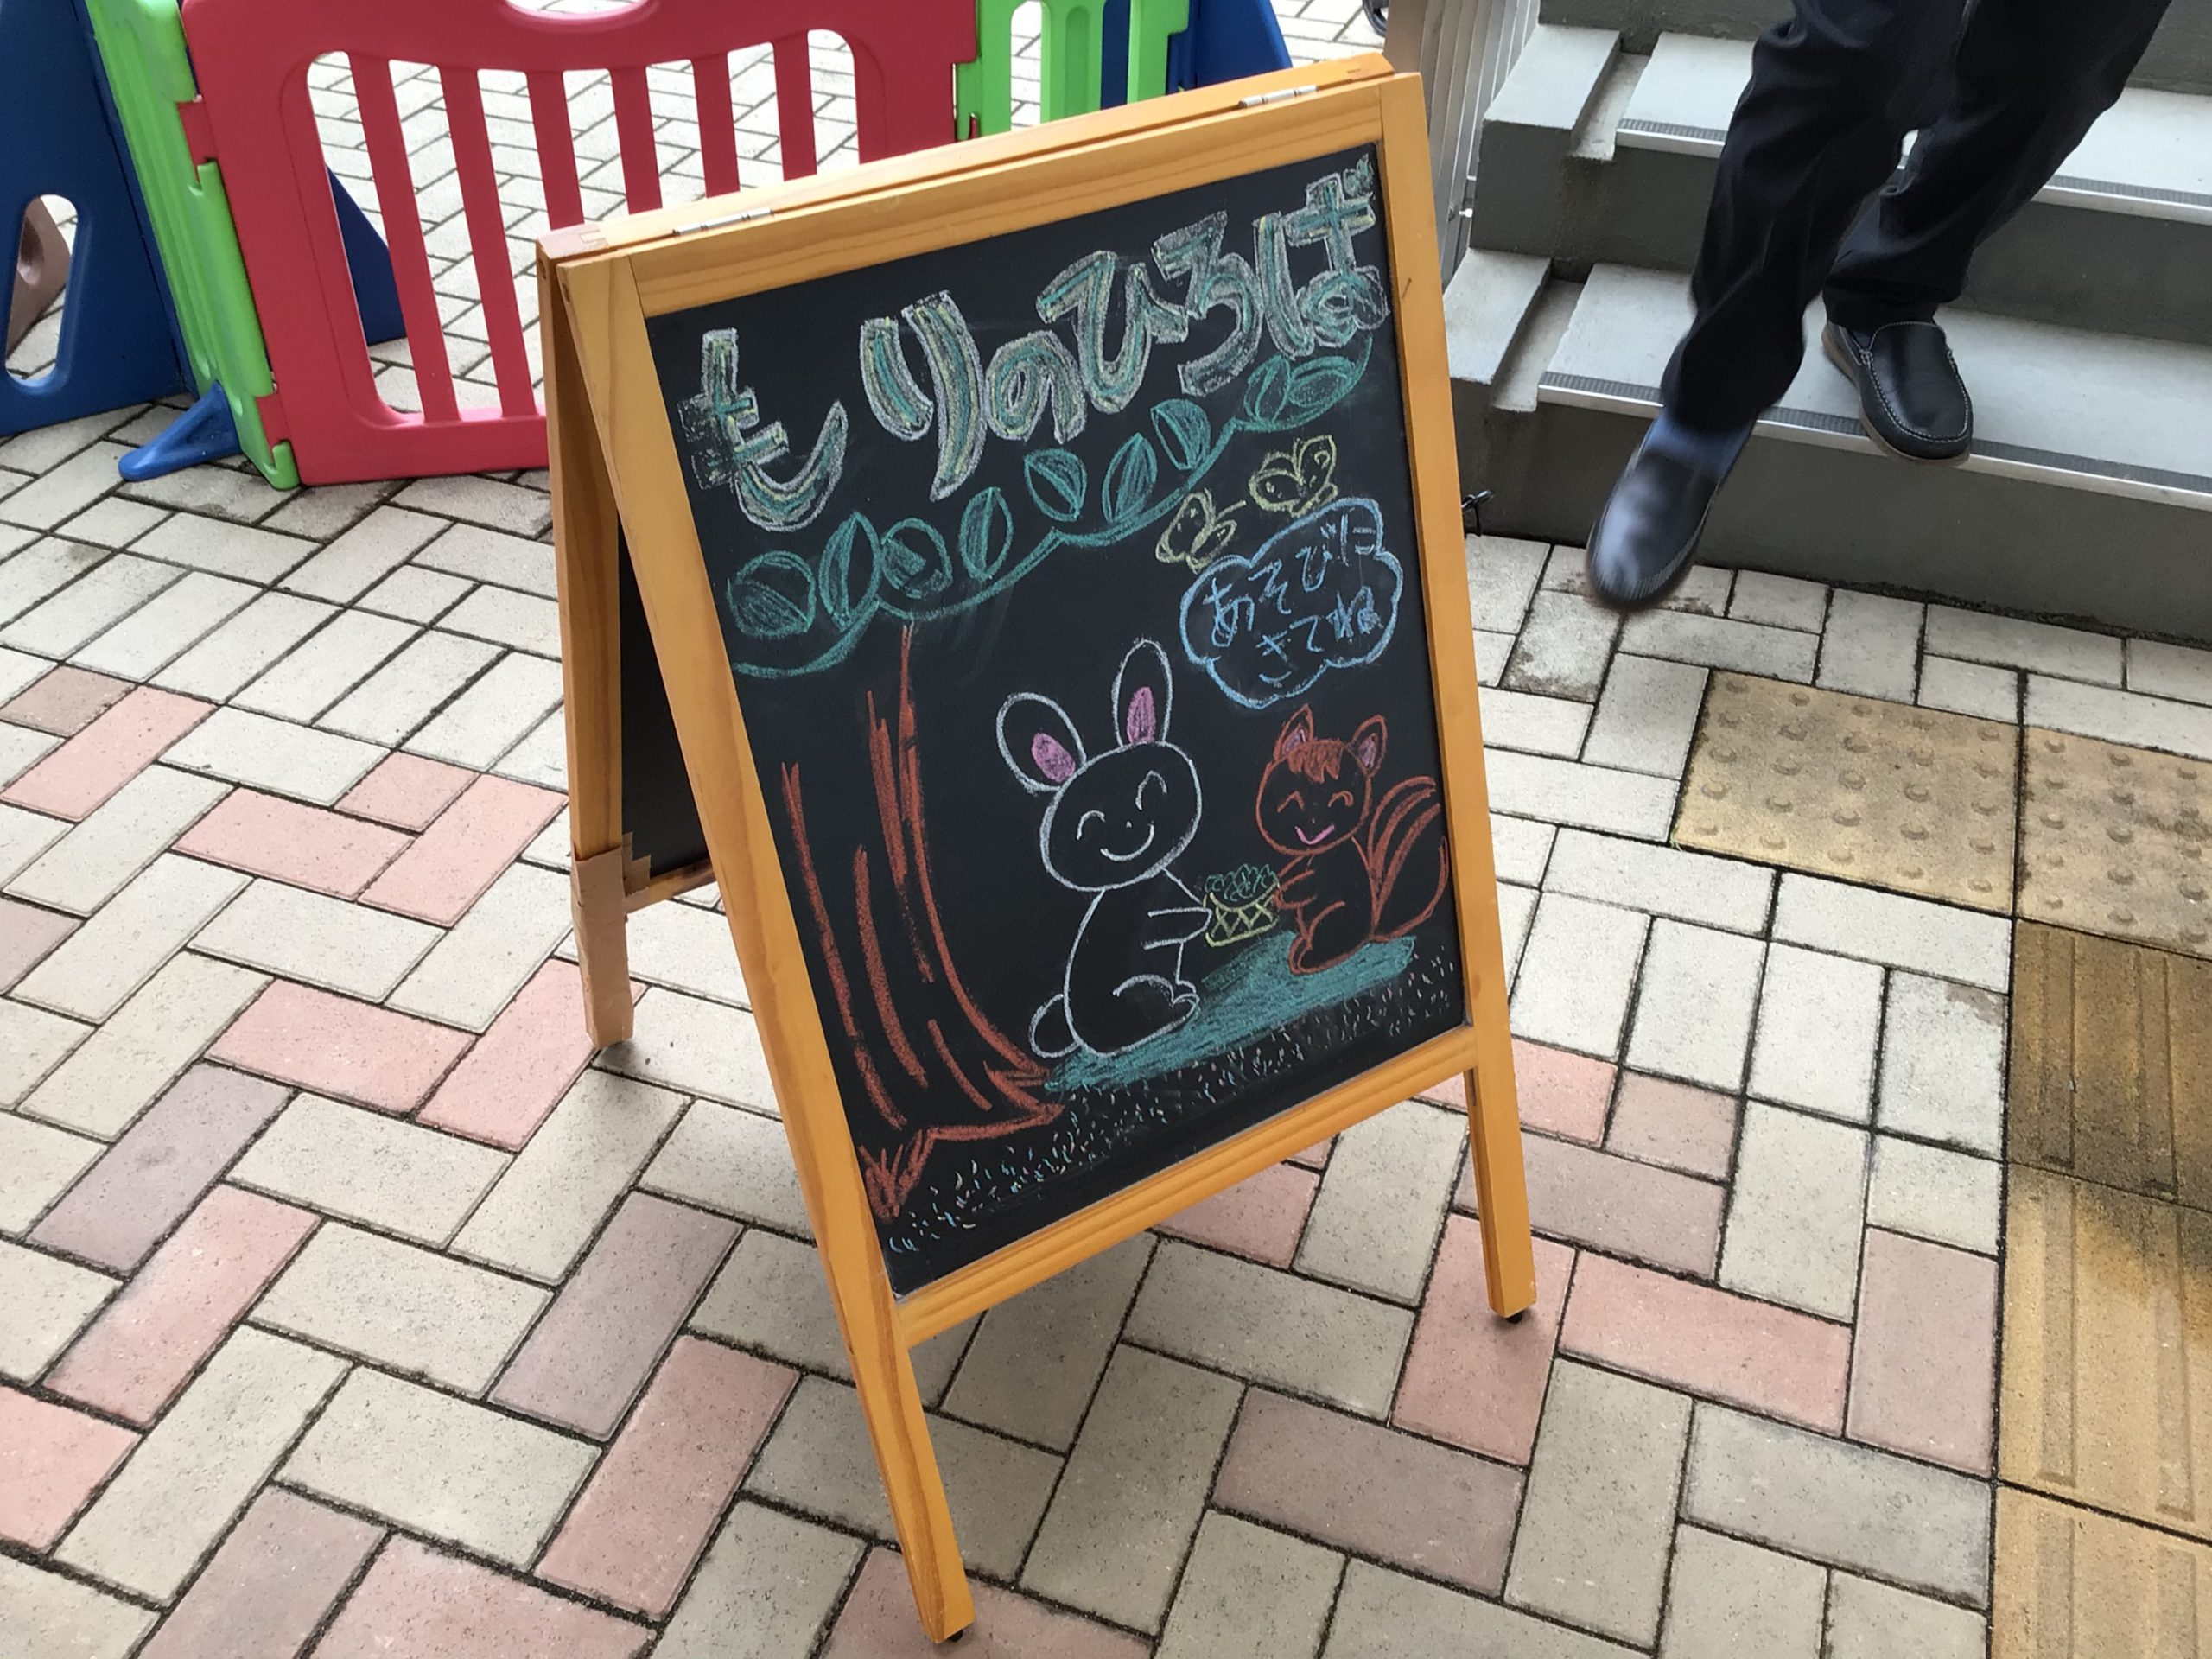 もりのひろば
あそびに
きてね